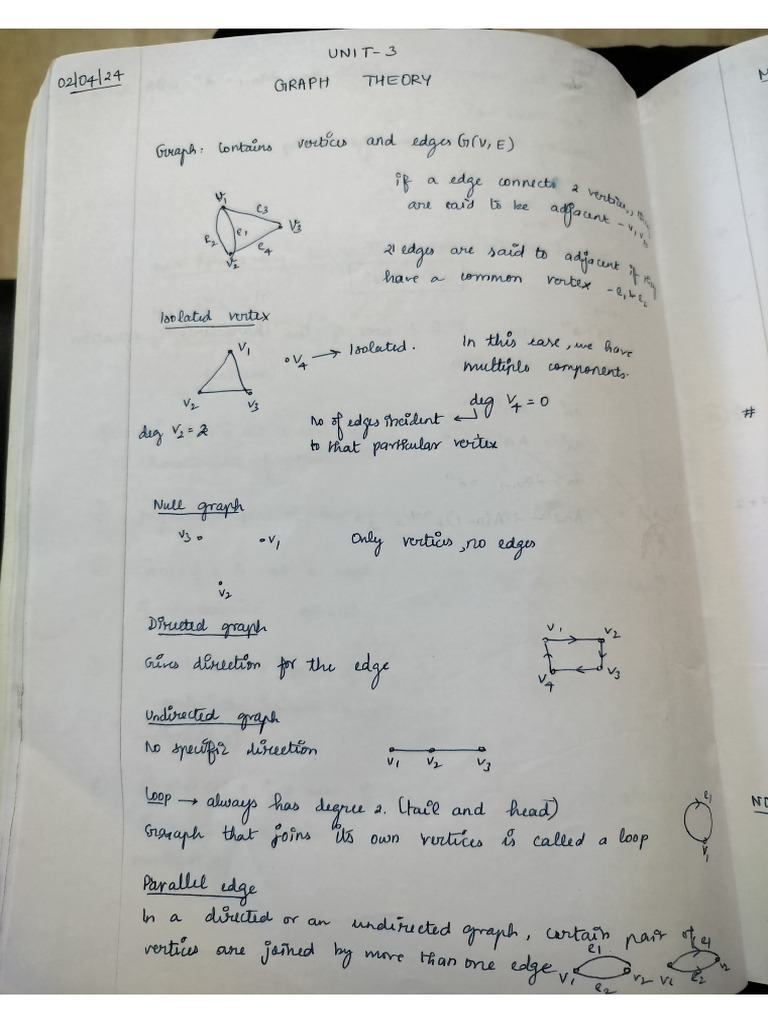 UNIT-3
02/04/24
GRAPH THEORY
Graph: Contains vertices and edges G(V, E)
if a edge connects 2 vertices,
are said to be adjacent - V1, V3
V1
e3
V3
e2
e1
e4
V2
2 edges are said to adjacent if they
have a common vertex - e1 & e2
Isolated vertex
V1
V4 → Isolated.
In this case, we have
multiple components.
V2
V3
deg V4 = 0
deg V2 = 2
No of edges incident
to that particular vertex
Null graph
V3
V1
Only vertices, no edges
V2
Directed graph
V1
V2
Gives direction for the edge
V4
V3
Undirected graph
No specific direction
V1 V2 V3
Loop → always has degree 2. (tail and head)
e1
Graph that joins its own vertices is called a loop
V1
Parallel edge
In a directed or an undirected graph, certain pair of
vertices are joined by more than one edge
e1
V1
V2
e2
e1
V1
V2
e2
#